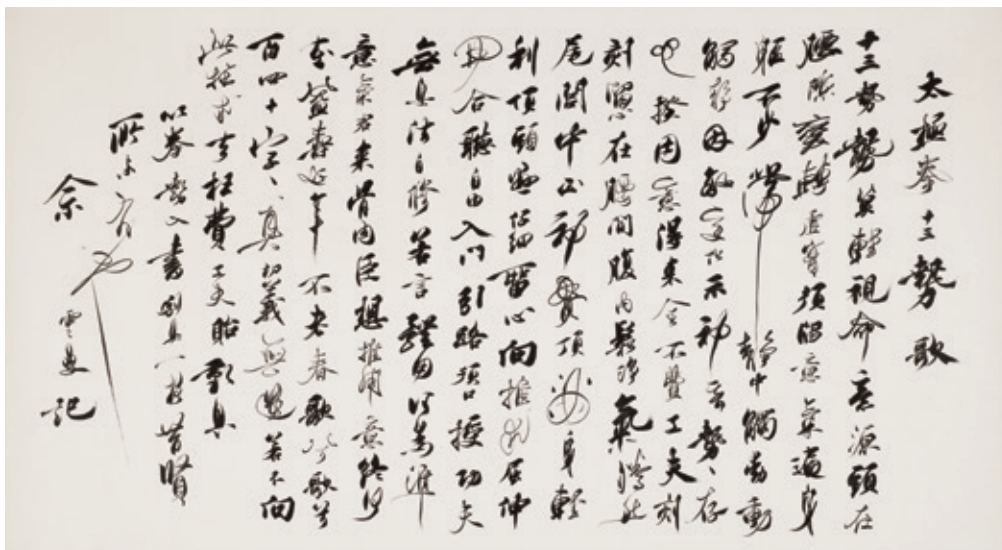 太極拳十三勢歌
十三勢勢莫輕視命意源頭在
腰隙變轉虛實須留意氣遍身
軀不少滯靜中觸動動
靜因敵變化示神奇勢、存
心揆用意得來全不費工夫刻
刻留在腰間腹內鬆淨氣騰然
尾閭中正神貫頂滿身輕
利頂頭懸仔細留心向推求屈伸
開合聽自由入門引路須口授功夫
無息法自修若言體用何為準
意氣君來骨肉臣想推用意終何
在益壽延年不老春歌兮歌兮
百四十字、真切義無遺若不向
此推求去枉費工夫貽歎息
以拳勢入書則是一技昔賢
所未有也
余 記